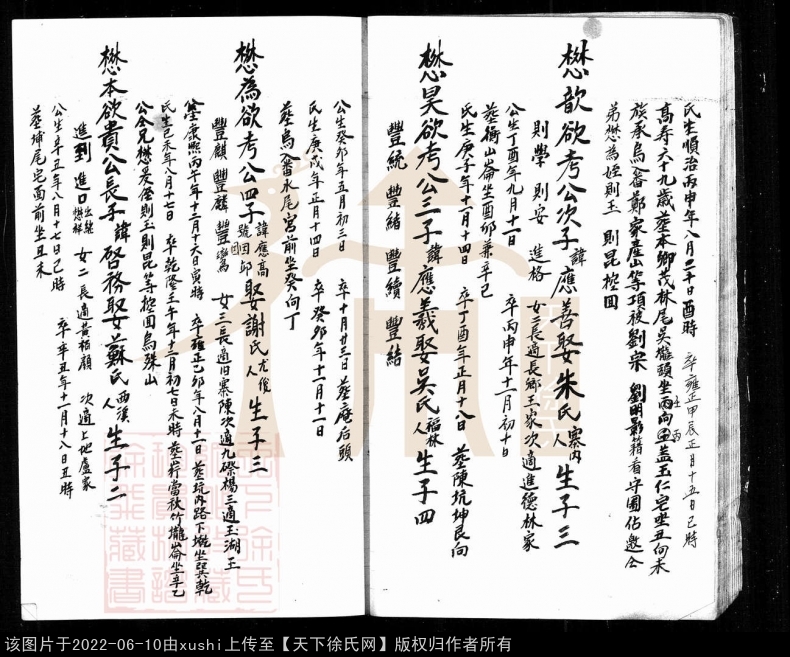 氏生順治丙申年八月二十日酉時 卒雍正甲辰正月十五日己時
高寿六十九歲葬本鄉茂林尾吳壠頭坐丙向蓋玉仁宅坐丑向未
族承烏番鄭家產山等項被劉宗 劉明影籍看守園佔邀仝
弟懋為姪則玉 則昆控回
懋歆欲考公次子諱應善娶朱氏寨内人生子三
則學 則安 進格 女二長適長鄉王家次適進德林家
公生丁酉年九月十一日 卒丙申年十二月初十日
葬衙山崙坐酉卯兼辛己
懋昊欲考公三子諱應羲娶吳氏福林人生子四
氏生庚子年十一月十四日 卒丁酉年正月十八日 葬陳坑坤艮向
豐統 豐緒 豐續 豐結
公生癸卯年五月初三日 卒十月廿三日 葬庵后頭
氏生庚戌年正月十四日 卒癸卯年十二月十一日
葬烏番水尾宮前坐癸向丁
懋為欲考公四子諱應高號田邱娶謝氏尤後人生子三
豐麒 豐麟 豐鸞 女三長適旧寨陳次適九磔楊三適玉湖王
康熙丙午年十二月十六日寅時 卒雍正己卯年八月十一日 葬坑内路下坐巽乾
氏生己未年八月十七日 卒乾隆壬午年十二月初七日未時葬葬當秋竹壠崙坐辛乙
公仝兄懋昊侄則玉則昆等控回烏殊山
懋本欲貴公長子諱啓務娶蘇氏西溪人生子二
進到 進口 女二長適黃柏願 次適上地盧家
公生辛丑年八月十七日己時 卒辛丑年十一月十八日丑時
葬埔尾宅西前坐丑未
该图片于2022-06-10由xushi上传至【天下徐氏网】版权归作者所有